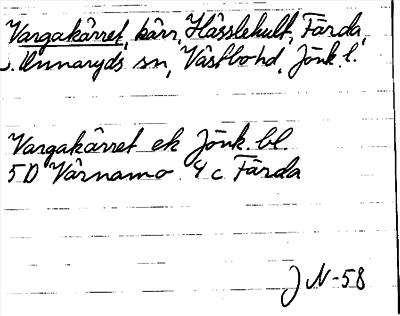 Vargakärret, kärr, Hässlehult, Färda,
S. Unnaryds sn, Västbo hd, Jönk. l.
Vargakärret ek Jönk. bl.
5D Värnamo 4c Färda
J N-58